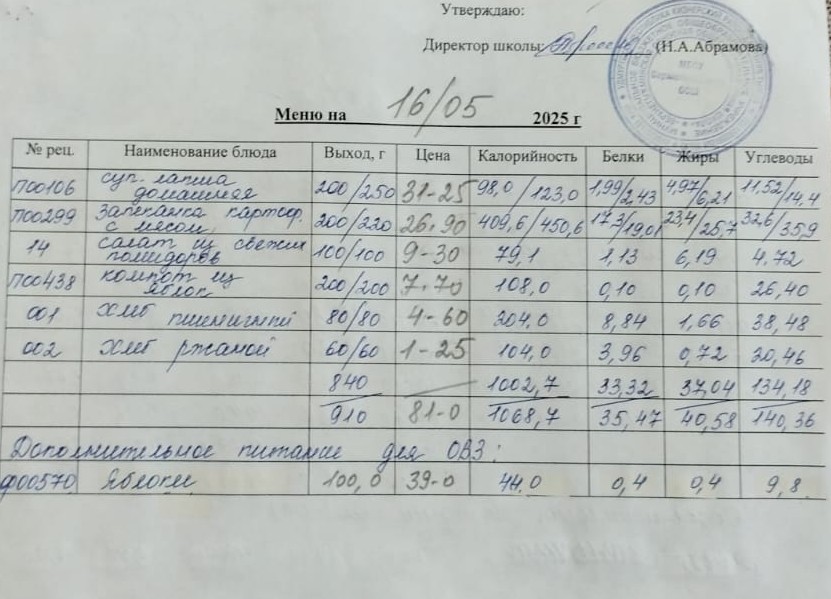 Утверждаю:
Директор школы: (Н.А.Абрамова)
Меню на 16/05 2025 г
№ рец. Наименование блюда Выход, г Цена Калорийность Белки Жиры Углеводы
П00106 суп-лапша домашняя 200/250 31-25 98,0/123,0 1,99/2,43 4,97/6,21 11,52/14,4
П00299 Запеканка картоф. с мясом 200/220 26.90 409,6/450,6 17,3/19,01 23,4/25,7 32,6/35,9
14 салат из свежих помидоров 100/100 9-30 79,1 1,13 6,19 4.72
П00438 компот из яблок 200/200 7.70 108,0 0,10 0,10 26,40
001 хлеб пшеничный 80/80 4-60 204,0 8,84 1,66 38,48
002 хлеб ржаной 60/60 1-25 104,0 3,96 0,72 20,46
840 1002,7 33,32 37,04 134,18
910 81-0 1068,7 35,47 40,58 140,36
Дополнительное питание для ОВЗ:
ф00570 Яблоки 100,0 39-0 44.0 0,4 0,4 9,8